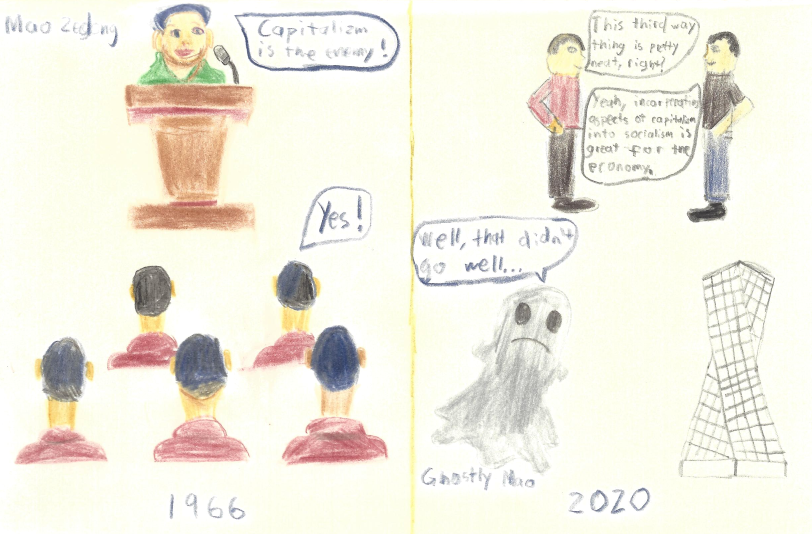 Mao Zedong
Capitalizm
is the enemy!
Yes!
1966
This third way
thing is petty
neat, right?
Yeah, incorperating
aspects of capitalism
into socialism is
great for the
economy.
Well, that didn't
go well...
Ghostly Mao
2020